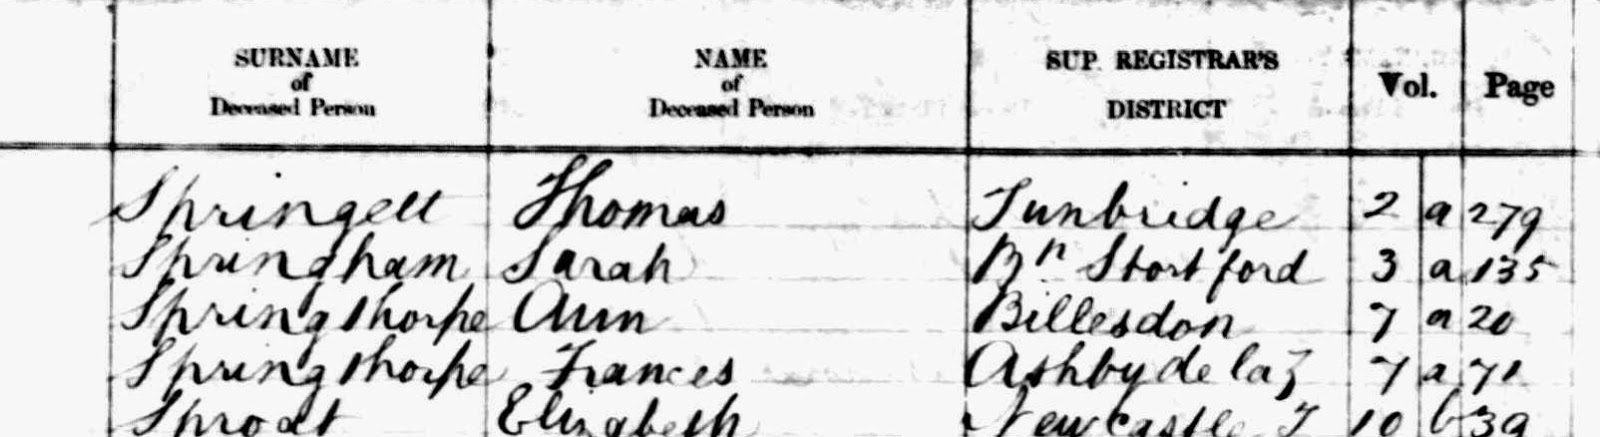 SURNAME of Deceased Person NAME of Deceased Person SUP. REGISTRAR'S DISTRICT Vol. Page
Springett Thomas Tunbridge 2 a 279
Springham Sarah Bn Stortford 3 a 135
Springthorpe Ann Billesdon 7 a 20
Springthorpe Frances Ashby de la Z 7 a 71
Sproat Elizabeth Newcastle T 10 b 39